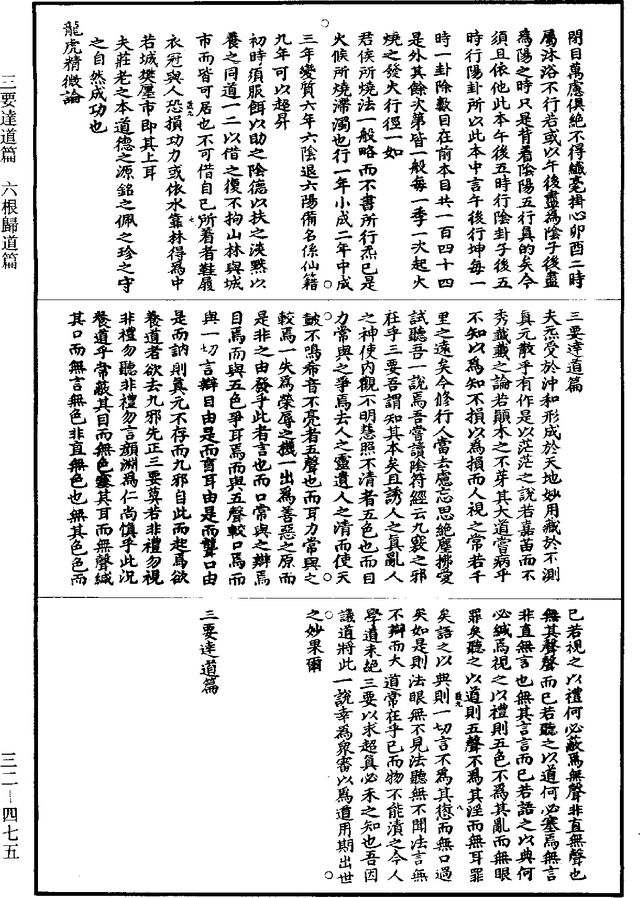 閉目萬慮俱絕不得纖毫掛心卯酉二時
屬沐浴不行若或以午後盡為陰子後盡
為陽之時只是背看陰陽五行真的矣今
須且依他此本午後五時行陰卦子後五
時行陽卦所以此本中言午後行坤每一
時一卦除數目在前本目共一百四十四
是外其餘次第皆一般每一季一次起火
燒之發火行徑一如
君侯所燒法一般略而不書所行炁已是
火候所燒滯濁也行一年小成二年中成
三年變質六年六陰退六陽備名係仙籍
九年可以超昇
初時須服餌以助之陰德以扶之淡黙以
養之同道一二以借之復不拘山林與城
市而皆可居也不可借自己所著者鞋履
衣冠與人恐損功力或依水靠林得為中
若城樊廛市即其上耳
夫莊老之本道德之源銘之佩之珍之守
之自然成功也
龍虎精微論
三要達道篇
夫炁受於沖和形成於天地妙用藏於不測
真元散乎有作是以茫茫之說若嘉苗而不
秀蘵蘵之論若顛木之不芽其大道嘗病乎
不知以為知不損以為損而人視之常若千
里之遠矣今修行人當去慮忘思絕塵擲愛
試聽吾一說焉吾嘗讀陰符經云九竅之邪
在乎三要吾謂知其本矣且誘人之真亂人
之神使內觀不明慧照不清者五色也而目
力常與之爭焉去人之靈遺人之清而使天
皷不鳴希音不亮者五聲也而耳力常與之
較焉一失為榮辱之機一出為善惡之原而
是非之由發乎此者言也而口常與之辯焉
目焉而與五色爭耳焉而與五聲較口焉而
與一切言辯目由是而盲耳由是而聾口由
是而訥則真元不存而九邪自此而起焉欲
養道者欲去九邪先正三要莫若非禮勿視
非禮勿聽非禮勿言顏淵為仁尚慎乎此況
養道乎常蔽其目而無色塞其耳而無聲緘
其口而無言無色非直無色也無其色色而
已若視之以禮何必蔽焉無聲非直無聲也
無其聲聲而已若聽之以道何必塞焉無言
非直無言也無其言言而已若語之以典何
必緘焉視之以禮則五色不為其亂而無眼
罪矣聽之以道則五聲不為其淫而無耳罪
矣語之以典則一切言不為其愆而無口過
矣如是則法眼無不見法聽無不聞法言無
不辯而大道常在乎已而物不能漬之今人
學道未絕三要以求超真必未之知也吾因
議道將此一說幸為衆審以為道用期出世
之妙果爾
三要達道篇
三要達道篇 六根歸道篇
三二—四七五